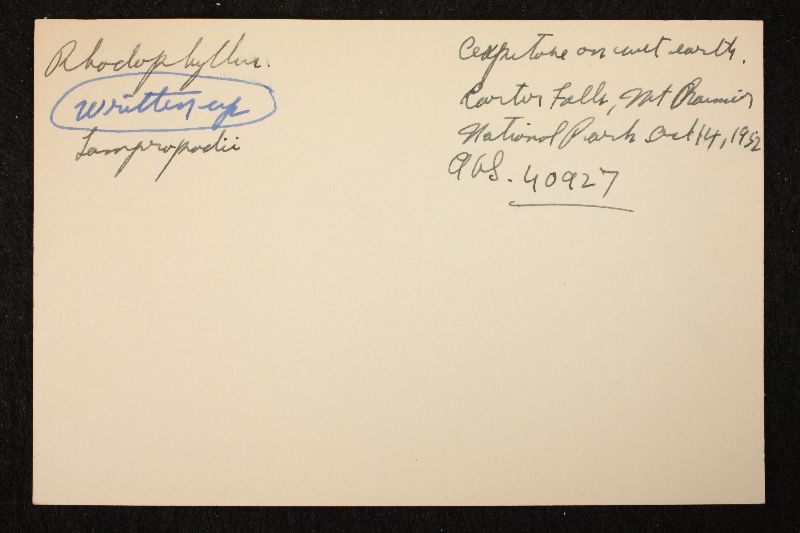 Rhodophyllus.
written up
Lampropodii
Cespitose on wet earth.
Carter Falls, Mt Rainier
National Park Oct 14, 1952
AHS. 40927